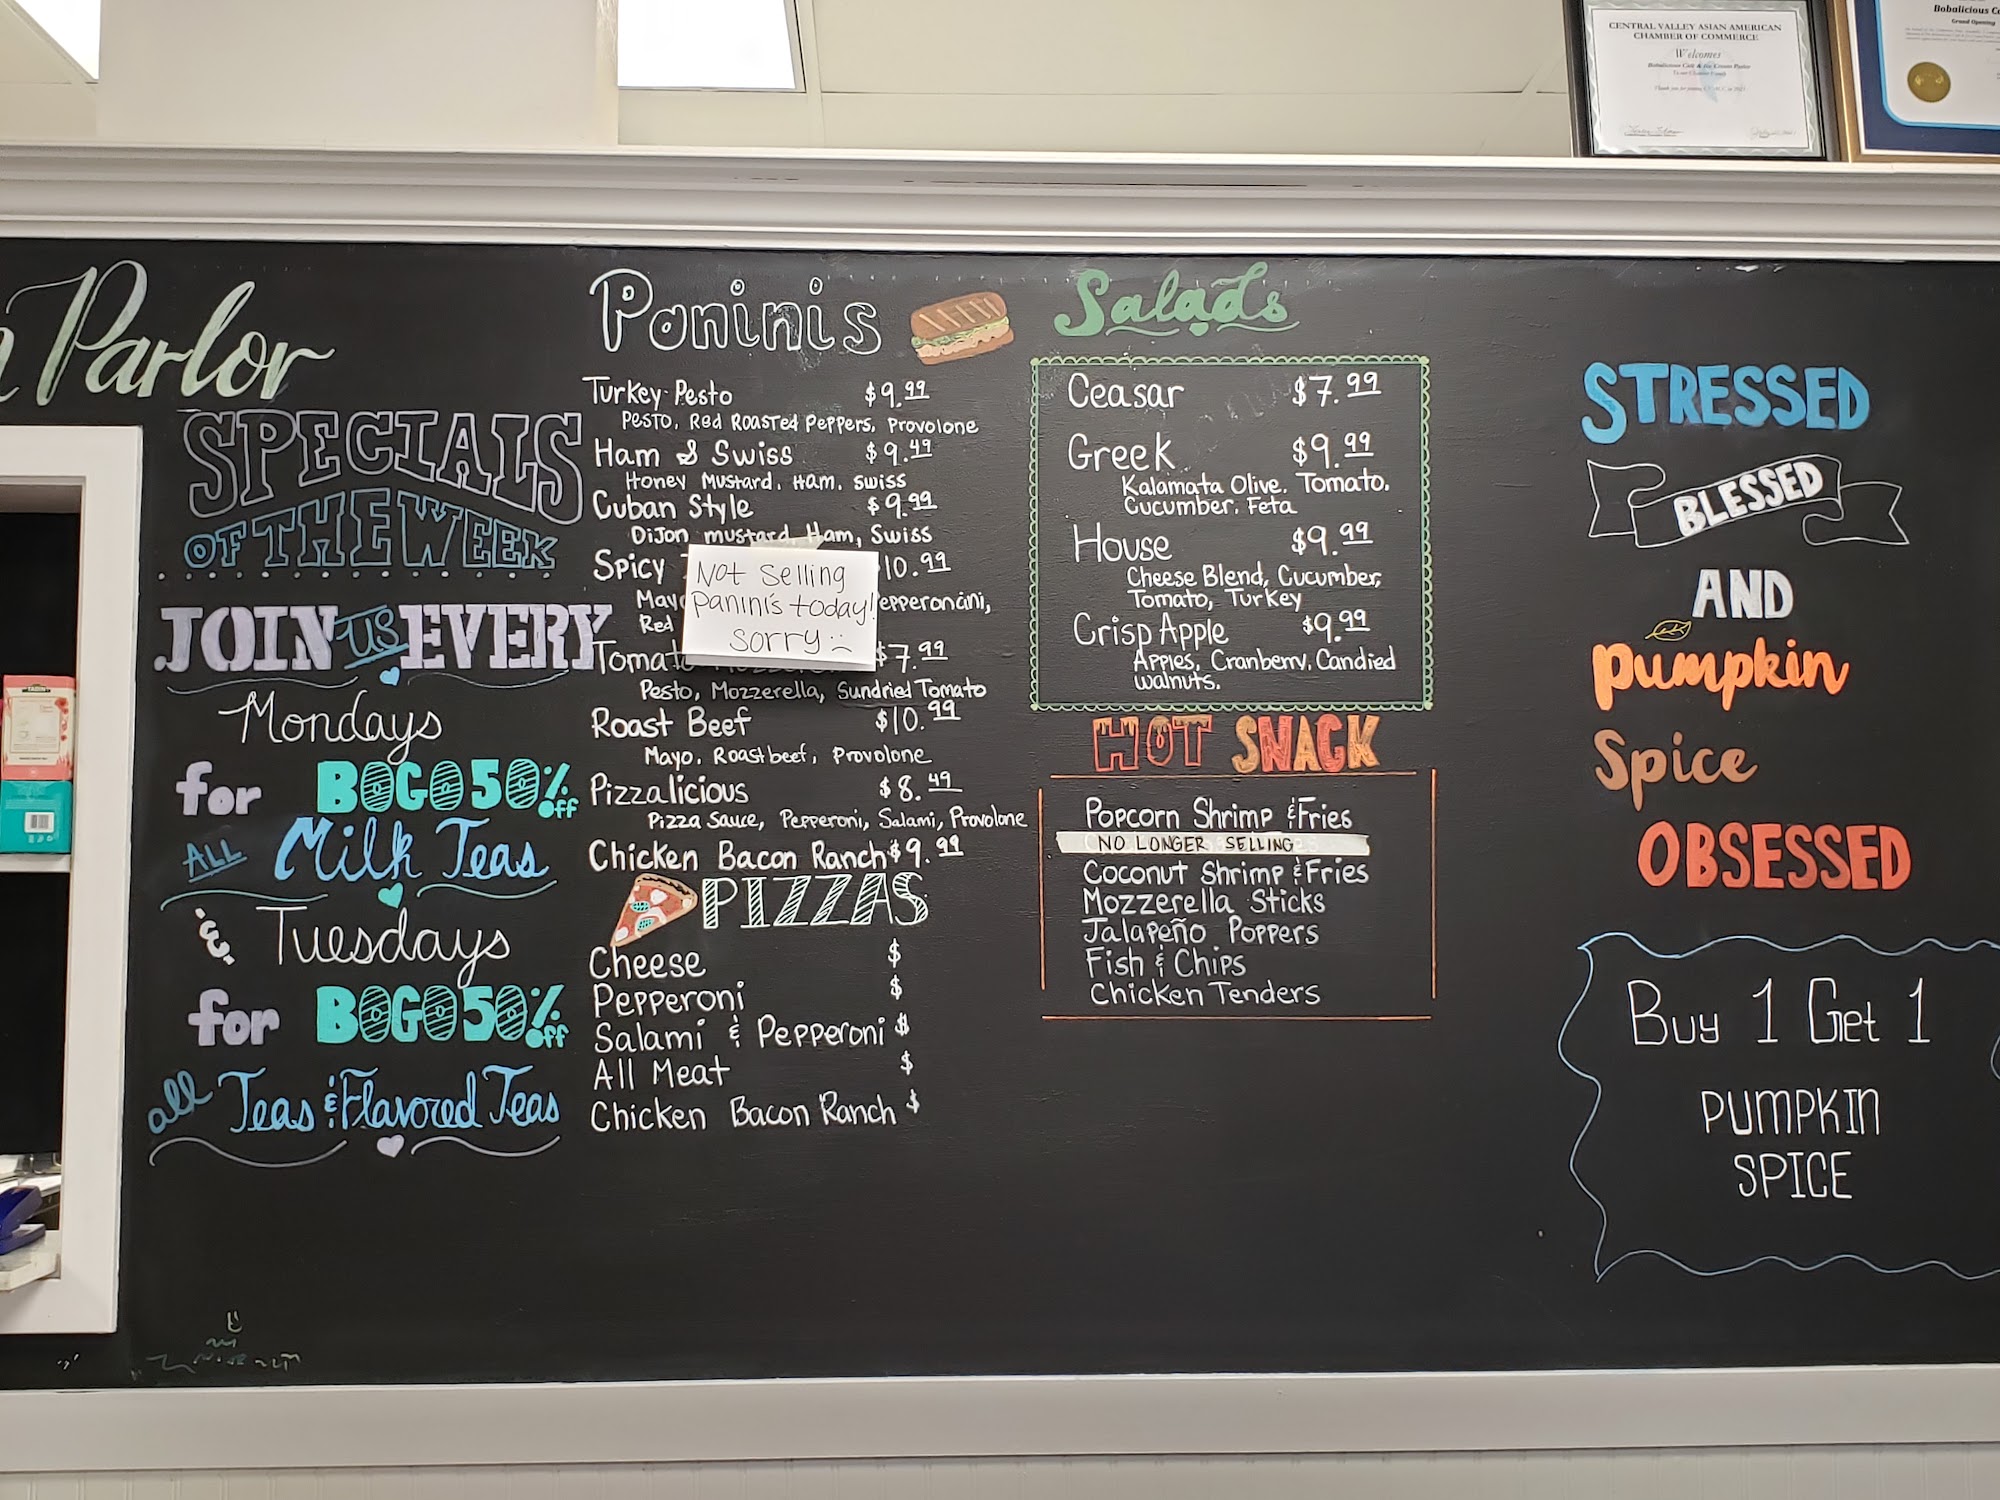 CENTRAL VALLEY ASIAN AMERICAN
CHAMBER OF COMMERCE
Welcomes
Bobalicious Cafe & Ice Cream Parlor
Bobalicious Ca
Grand Opening
Parlor
SPECIALS
OF THE WEEK
JOIN US EVERY
Mondays
for BOGO 50% off
ALL Milk Teas
& Tuesdays
for BOGO 50% off
all Teas & Flavored Teas
Paninis
Turkey Pesto $9.99
Pesto, Red Roasted Peppers, Provolone
Ham & Swiss $9.49
Honey Mustard, Ham, Swiss
Cuban Style $9.99
Dijon mustard, Ham, Swiss
Spicy $10.99
Mayo
epperoncini,
Red
Tomato $7.99
Pesto, Mozzerella, Sundried Tomato
Roast Beef $10.99
Mayo, Roastbeef, Provolone
Pizzalicious $8.49
Pizza Sauce, Pepperoni, Salami, Provolone
Chicken Bacon Ranch $9.99
Not Selling
Panini's today!
Sorry :(
PIZZAS
Cheese $
Pepperoni $
Salami & Pepperoni $
All Meat $
Chicken Bacon Ranch $
Salads
Ceasar $7.99
Greek $9.99
Kalamata Olive, Tomato,
Cucumber, Feta
House $9.99
Cheese Blend, Cucumber,
Tomato, Turkey
Crisp Apple $9.99
Apples, Cranberry, Candied
walnuts.
HOT SNACK
Popcorn Shrimp & Fries
NO LONGER SELLING
Coconut Shrimp & Fries
Mozzerella Sticks
Jalapeño Poppers
Fish & Chips
Chicken Tenders
STRESSED
BLESSED
AND
Pumpkin
Spice
OBSESSED
Buy 1 Get 1
PUMPKIN
SPICE